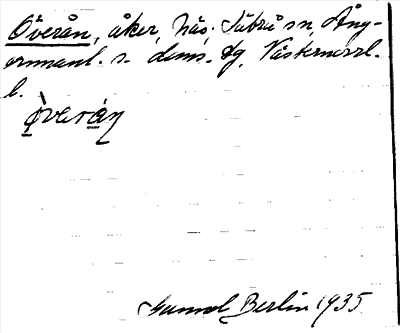 Överån, åker, Näs, Säbrå sn, Ång-
ermanl. s. dems. tg, Västernorrl.
l.
òveràn
Gunvol Berlin 1935